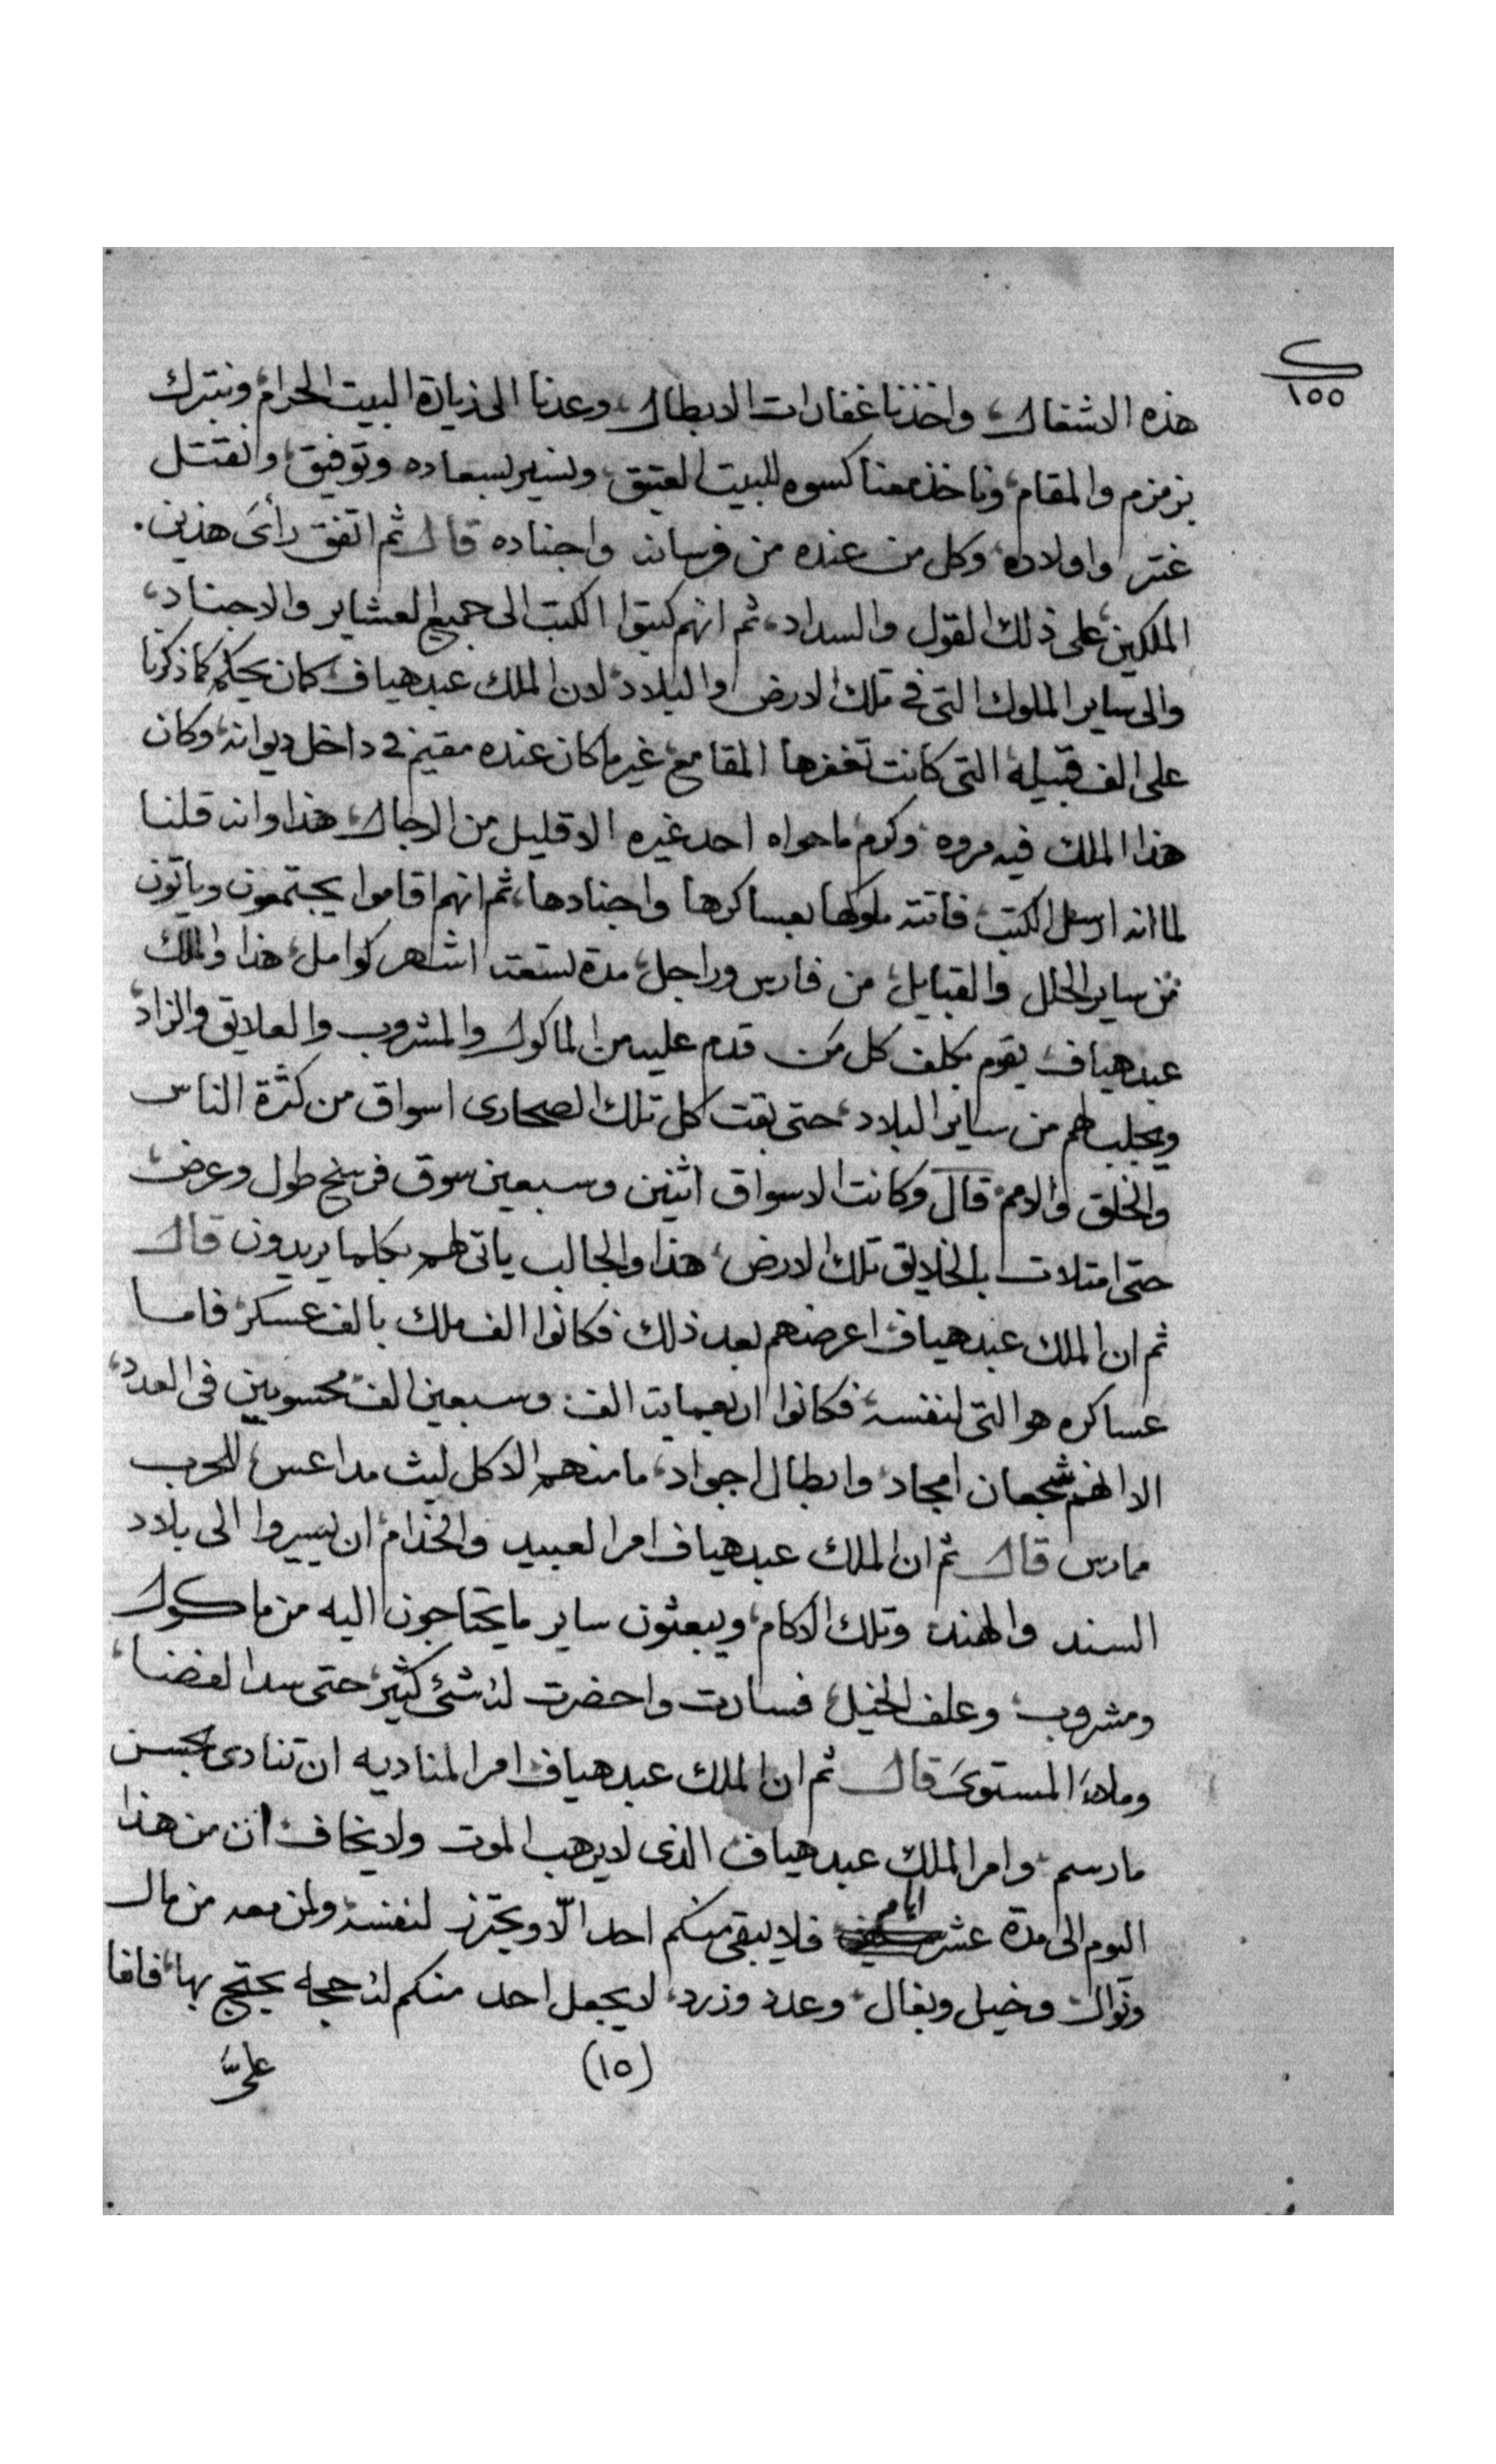 ١٥٥
هذه الاشغال، واخذنا غفارات الابطال، وعدنا الى زيارة البيت الحرام، ونتبرك
بزمزم والمقام، وناخذ معنا كسوه للبيت العتيق، ونسير بسعاده وتوفيق، ونقتل
عنتر واولاده، وكل من عنده من فرسانه واجناده قال ثم اتفق رأى هذين.
الملكين، على ذلك القول والسداد، ثم انهم كتبوا الكتب الى جميع العشاير والاجناد،
والى ساير الملوك التى فى تلك الارض والبلاد، لان الملك عبد هياف كان يحكم كما ذكرنا
على الف قبيله، التى كانت تغفرها المقامع، غير ما كان عنده مقيم فى داخل ديوانه، وكان
هذا الملك فيه مروه، وكرم ما حواه احد غيره الا قليل من الرجال، هذا وانه قلنا
لما انه ارسل الكتب، فاتته ملوكها بعساكرها واجنادها، ثم انهم اقاموا يجتمعون وياتون
من ساير الحلل والقبايل، من فارس وراجل، مدة تسعة اشهر كوامل، هذا والملك
عبد هياف، يقوم بكلف كل من قدم عليه من الماكول والمشروب والعلايق والزاد،
ويجلب لهم من ساير البلاد، حتى بقت كل تلك الصحارى اسواق من كثرة الناس
والخلق والامم، قال وكانت الاسواق اثنين وسبعين سوق فرسخ طول وعرض،
حتى امتلات بالخلايق تلك الارض، هذا والجالب ياتى لهم بكلما يريدون قال
ثم ان الملك عبد هياف اعرضهم بعد ذلك فكانوا الف ملك بالف عسكر، فاما
عساكره هو التى لنفسه، فكانوا اربعماية الف، وسبعين الف محسوبين فى العدد،
الا انهم شجعان امجاد، وابطال اجواد، ما منهم الا كل ليث مداعس، للحرب
ممارس قال ثم ان الملك عبد هياف امر العبيد والخدام، ان يسيروا الى بلاد
السند والهند، وتلك الاكام، ويبعثون ساير ما يحتاجون اليه من ماكول
ومشروب، وعلف الخيل، فسارت واحضرت له شئ كثير، حتى سد الفضا،
وملاء المستوى، قال ثم ان الملك عبد هياف امر المناديه ان تنادى بحسن
ما رسم، وامر الملك عبد هياف، الذى لا يرهب الموت ولا يخاف، ان من هذا
اليوم الى مدة عشر ايام فلا يبقى منكم احد الّا ويحترز لنفسه، ولمن معه من مال
ونوال، وخيل وبغال، وعدد وزرد، لا يجعل احد منكم له حجه يحتج بها، فانها
(١٥)
علىَّ